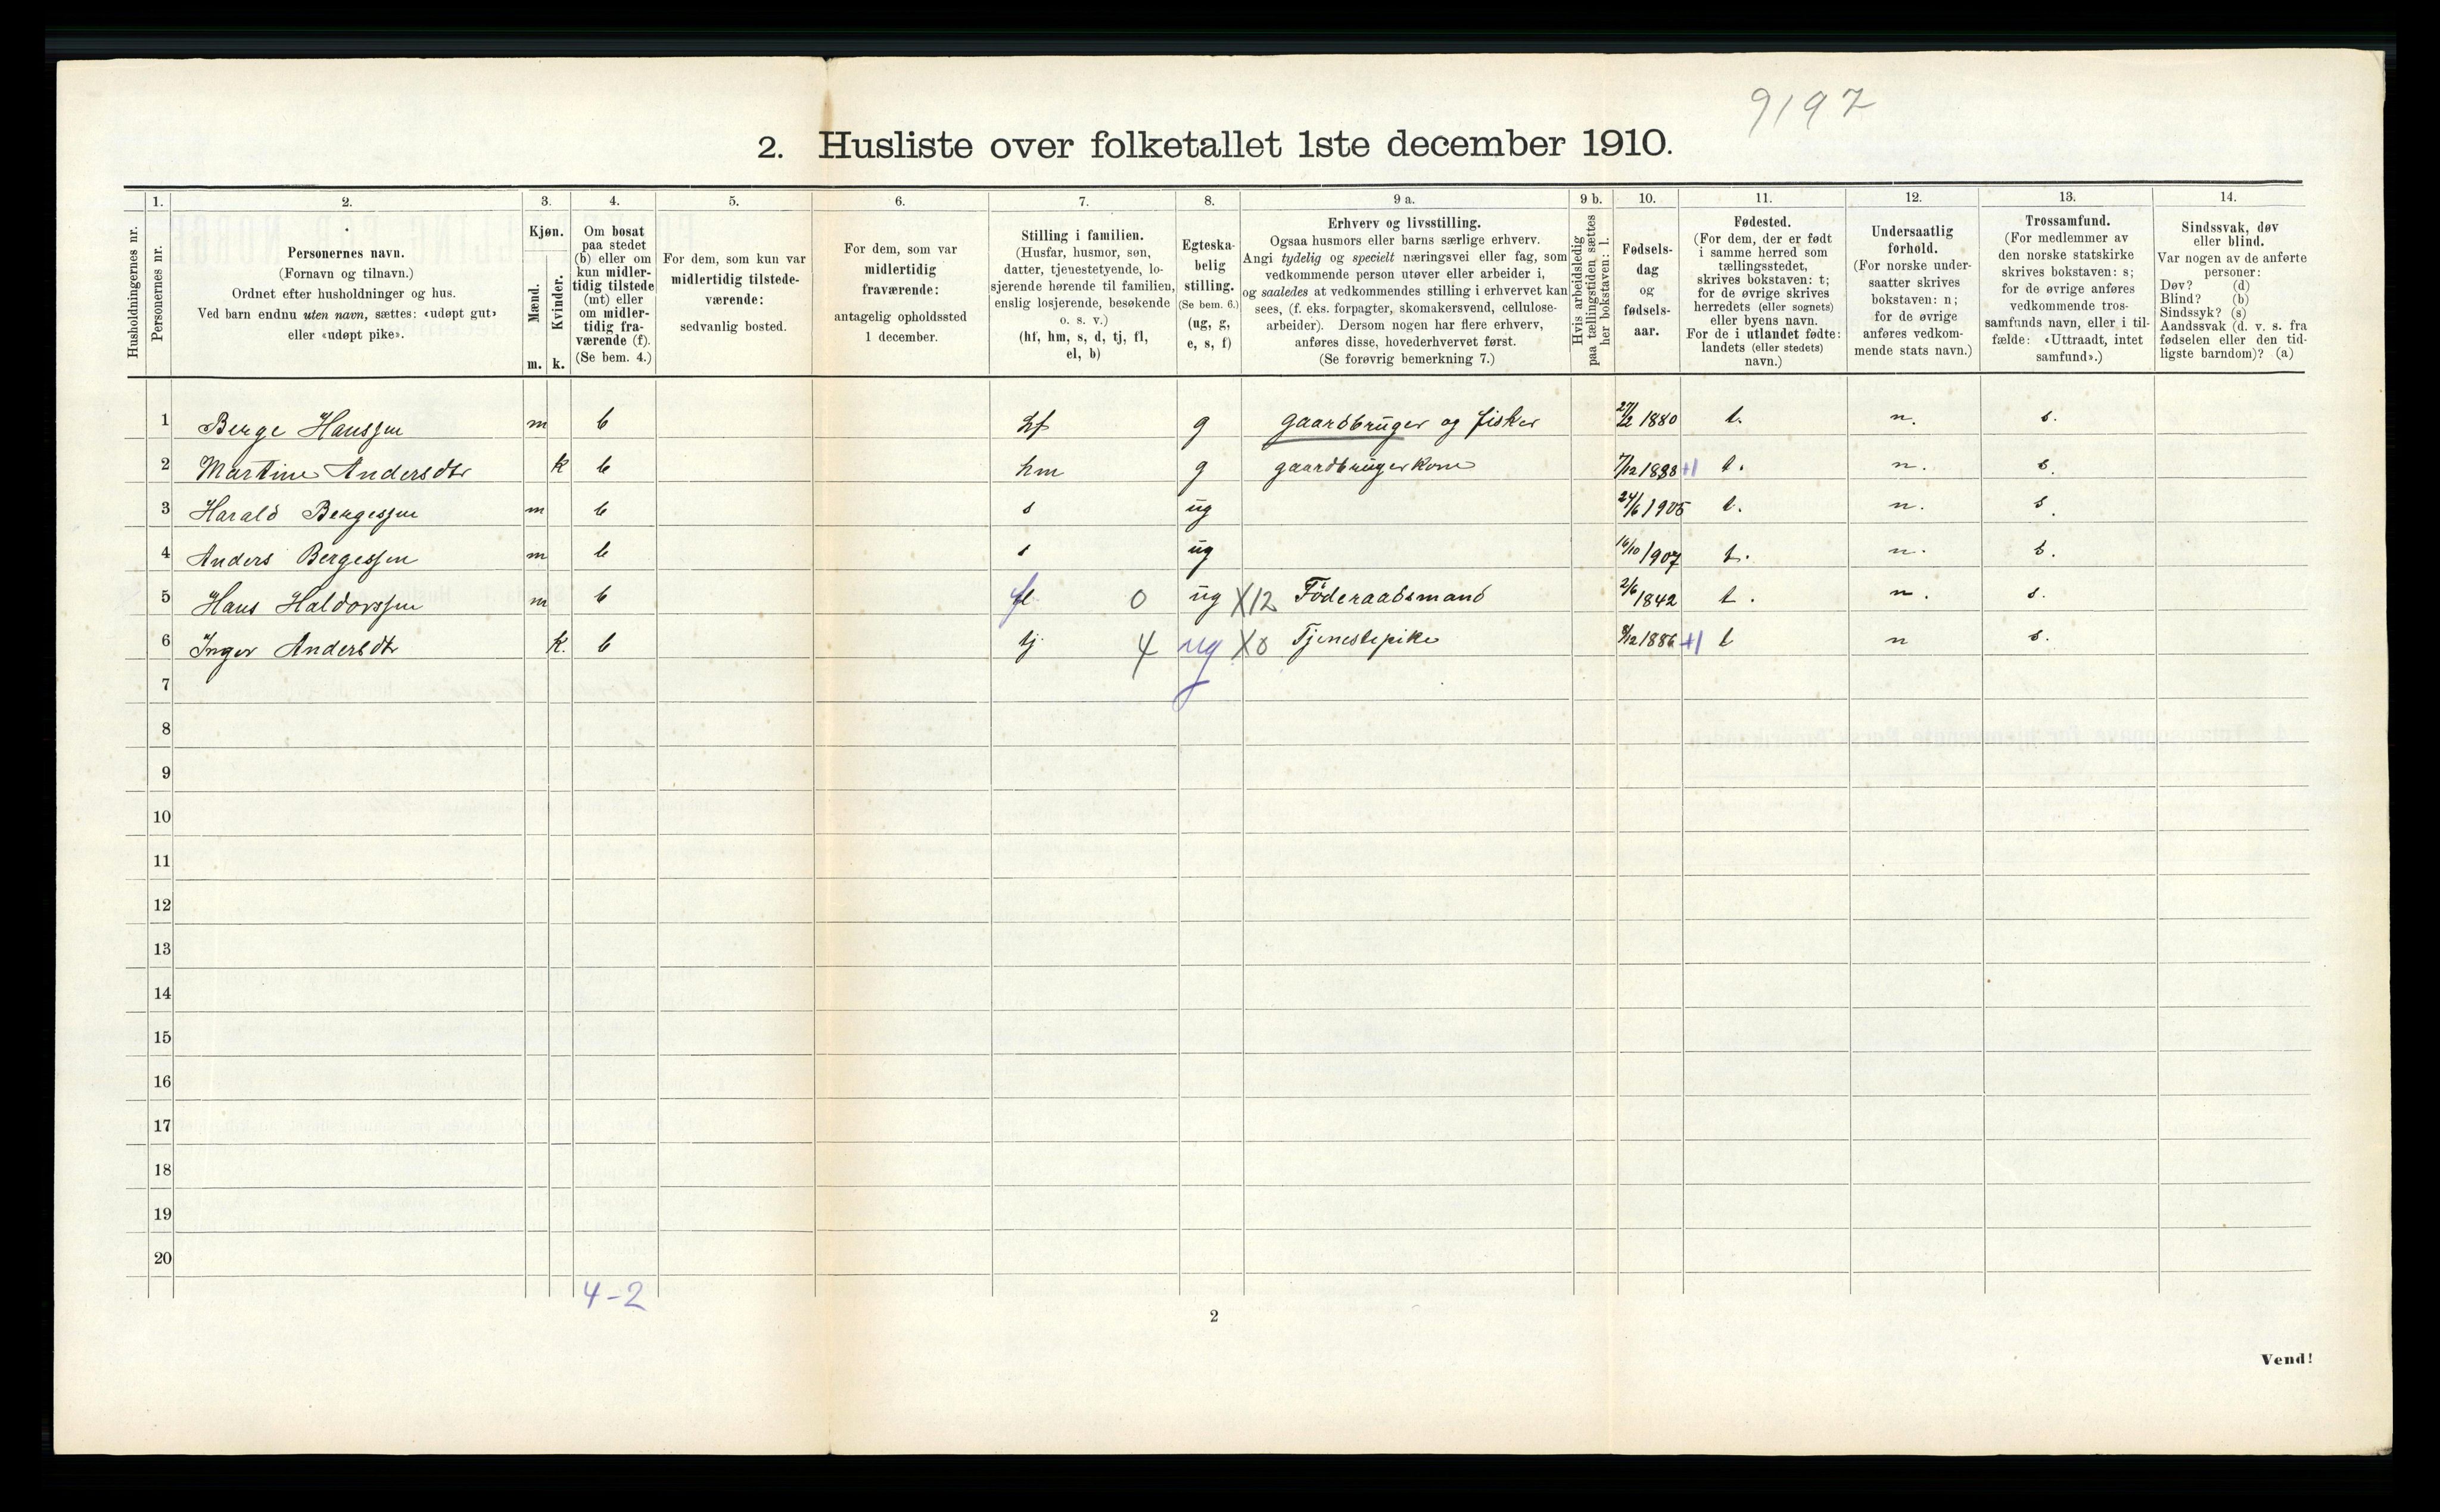 9197
2. Husliste over folketallet 1ste december 1910.
Husholdningernes nr.
1.
Personernes nr.
2.
Personernes navn.
(Fornavn og tilnavn.)
Ordnet efter husholdninger og hus.
Ved barn endnu uten navn, sættes: «udøpt gut»
eller «udøpt pike».
3.
Kjøn.
Mænd.
m.
Kvinder.
k.
4.
Om bosat
paa stedet
(b) eller om
kun midler-
tidig tilstede
(mt) eller
om midler-
tidig fra-
værende (f).
(Se bem. 4.)
5.
For dem, som kun var
midlertidig tilstede-
værende:
sedvanlig bosted.
6.
For dem, som var
midlertidig
fraværende:
antagelig opholdssted
1 december.
7.
Stilling i familien.
(Husfar, husmor, søn,
datter, tjenestetyende, lo-
sjerende hørende til familien,
enslig losjerende, besøkende
o. s. v.)
(hf, hm, s, d, tj, fl,
el, b)
8.
Egteska-
belig
stilling.
(Se bem. 6.)
(ug, g,
e, s, f)
9 a.
Erhverv og livsstilling.
Ogsaa husmors eller barns særlige erhverv.
Angi tydelig og specielt næringsvei eller fag, som
vedkommende person utøver eller arbeider i,
og saaledes at vedkommendes stilling i erhvervet kan
sees, (f. eks. forpagter, skomakersvend, cellulose-
arbeider). Dersom nogen har flere erhverv,
anføres disse, hovederhvervet først.
(Se forøvrig bemerkning 7.)
9 b.
Hvis arbeidsledig
paa tællingstiden sættes
her bokstaven: l.
10.
Fødsels-
dag
og
fødsels-
aar.
11.
Fødested.
(For dem, der er født
i samme herred som
tællingsstedet,
skrives bokstaven: t;
for de øvrige skrives
herredets (eller sognets)
eller byens navn.
For de i utlandet fødte:
landets (eller stedets)
navn.)
12.
Undersaatlig
forhold.
(For norske under-
saatter skrives
bokstaven: n;
for de øvrige
anføres vedkom-
mende stats navn.)
13.
Trossamfund.
(For medlemmer av
den norske statskirke
skrives bokstaven: s;
for de øvrige anføres
vedkommende tros-
samfunds navn, eller i til-
fælde: «Uttraadt, intet
samfund».)
14.
Sindssvak, døv
eller blind.
Var nogen av de anførte
personer:
Døv? (d)
Blind? (b)
Sindssyk? (s)
Aandssvak (d. v. s. fra
fødselen eller den tid-
ligste barndom)? (a)
1 Berge Hanssen m b hf g gaardbruger og fisker 27/2 1880 t. n. s.
2 Martine Andersdtr k b hm g gaardbrugerkone 7/12 1888 +1 t. n. s.
3 Harald Bergessen m b s ug 24/6 1905 t. n. s.
4 Anders Bergessen m b s ug 16/10 1907 t. n. s.
5 Hans Haldorssen m b fl 0 ug X12 Föderaadsmand 2/6 1842 t. n. s.
6 Inger Andersdtr k. b tj 4 ug X0 Tjenestepike 8/12 1886 +1 t n s.
7
8
9
10
11
12
13
14
15
16
17
18
19
20
4-2
2
Vend!